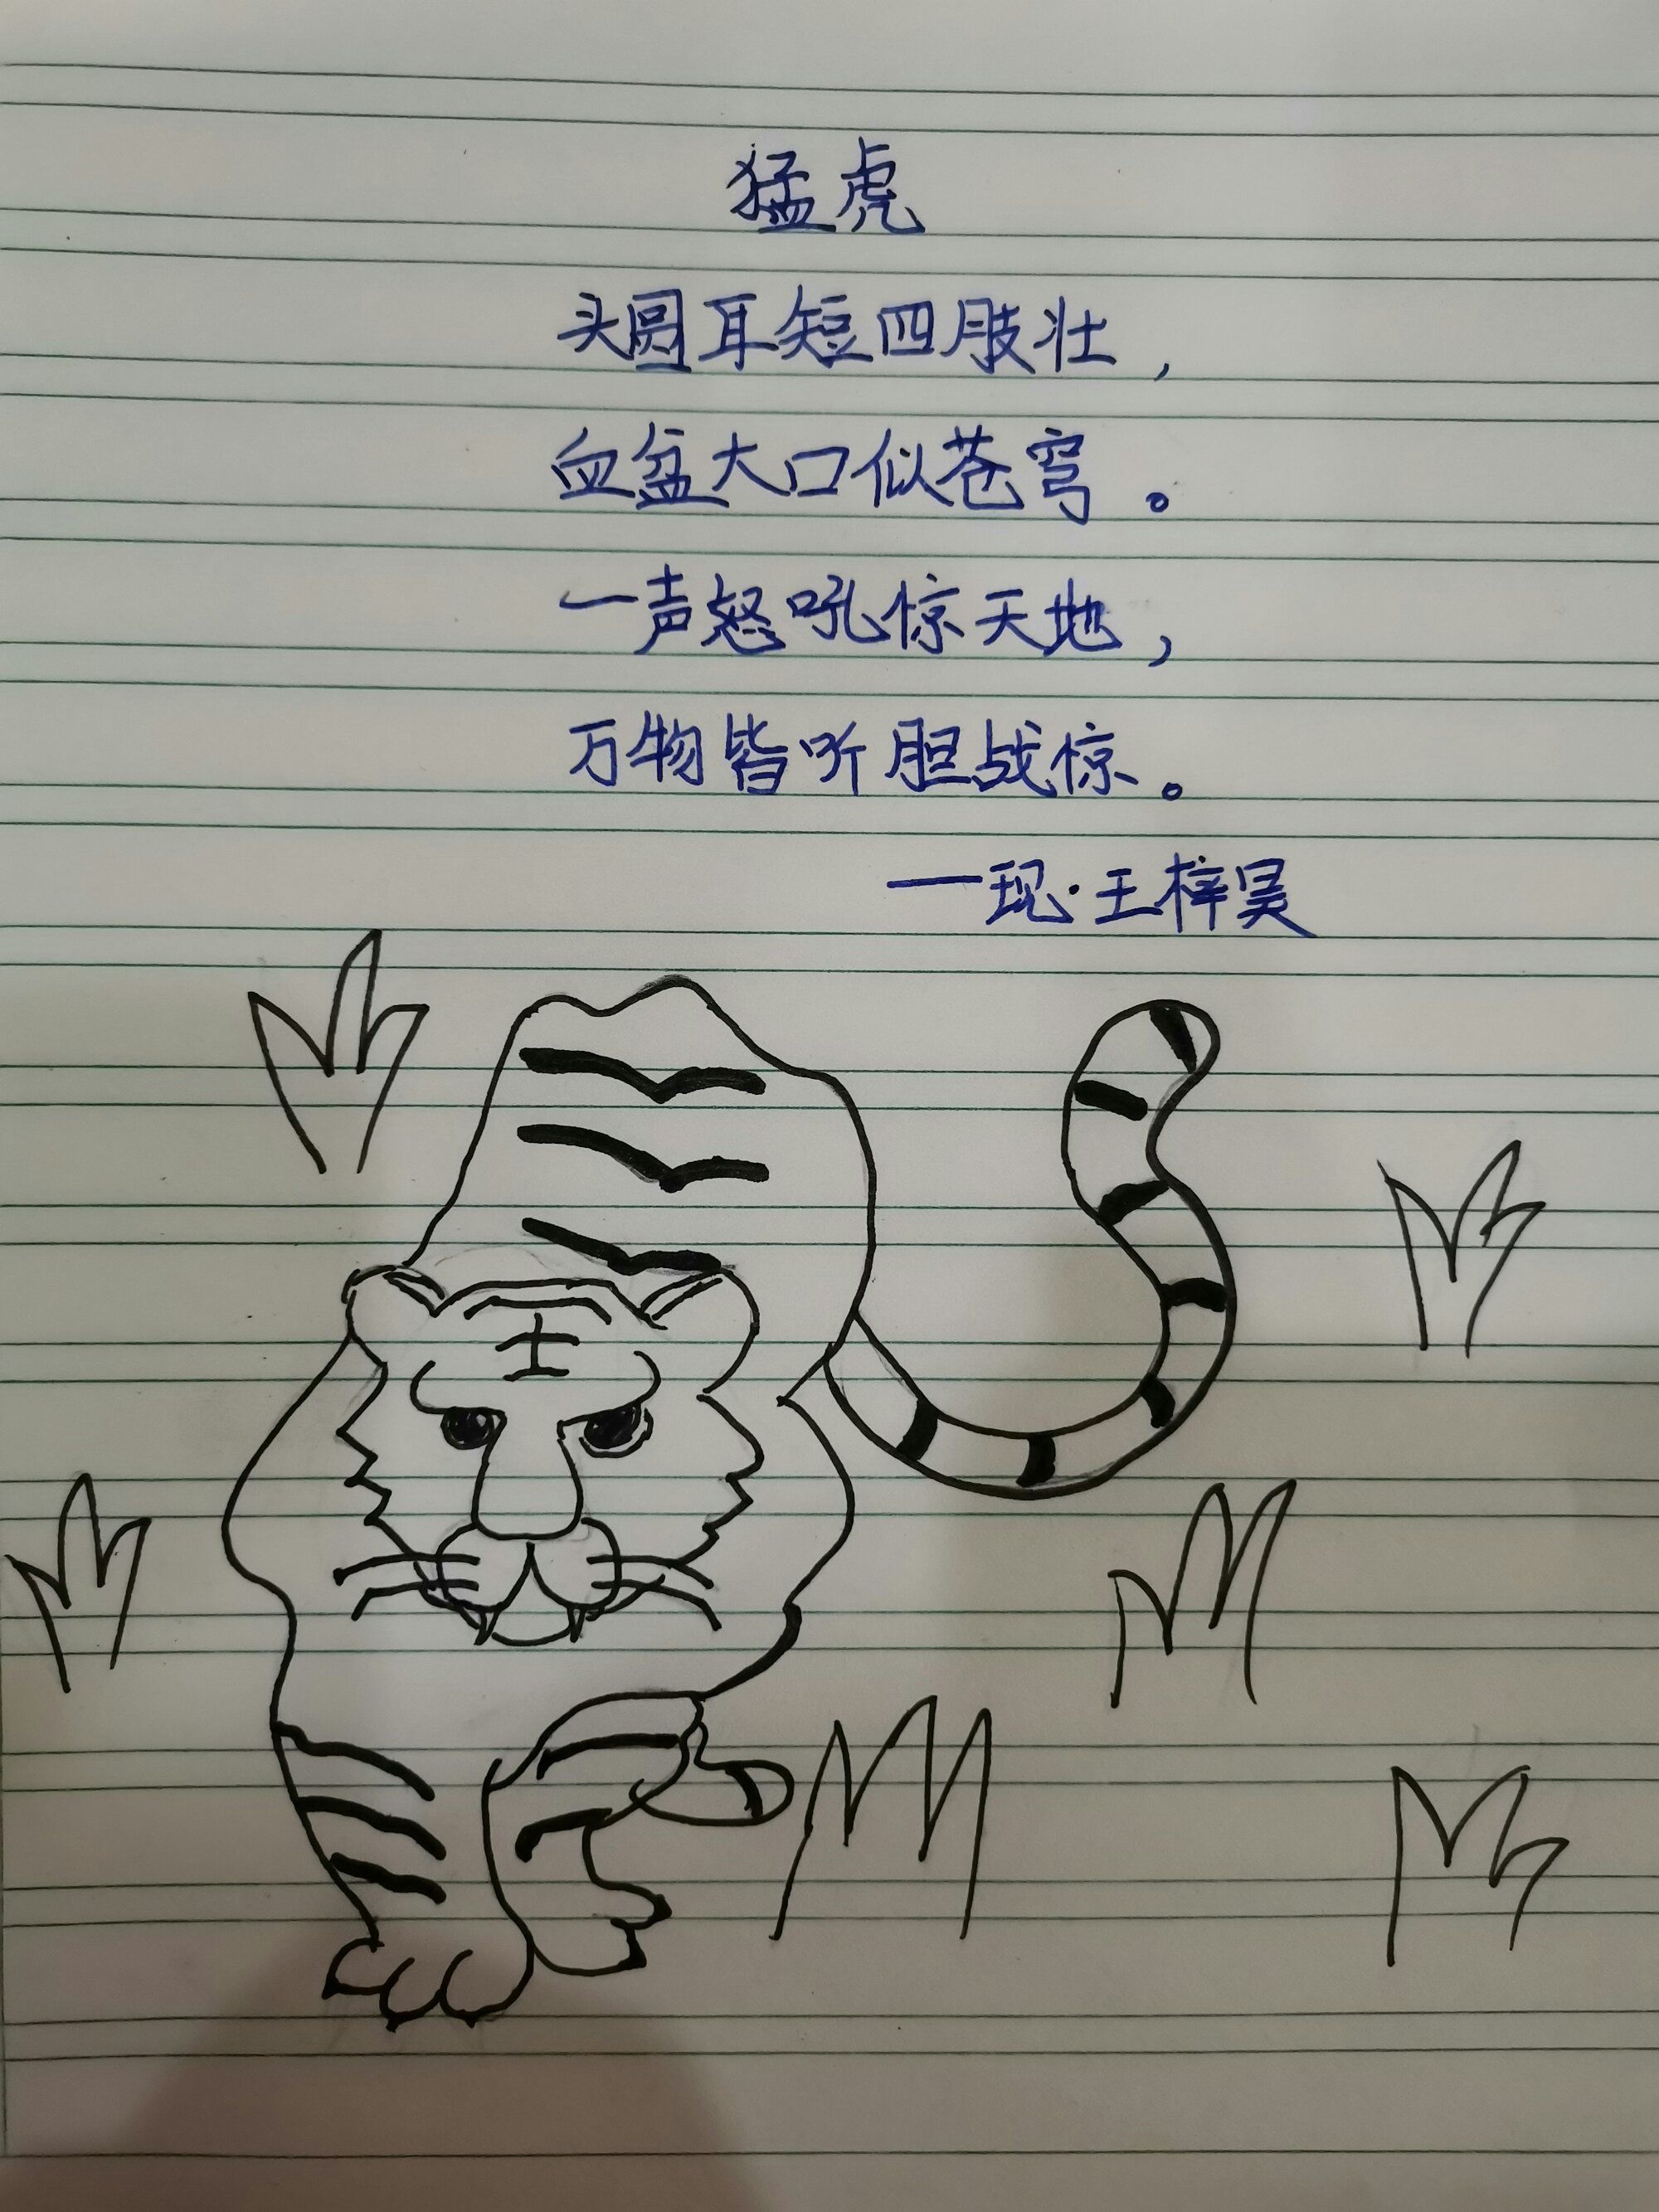 猛虎
头圆耳短四肢壮，
血盆大口似苍穹。
一声怒吼惊天地，
万物皆听胆战惊。
——现·王梓昊